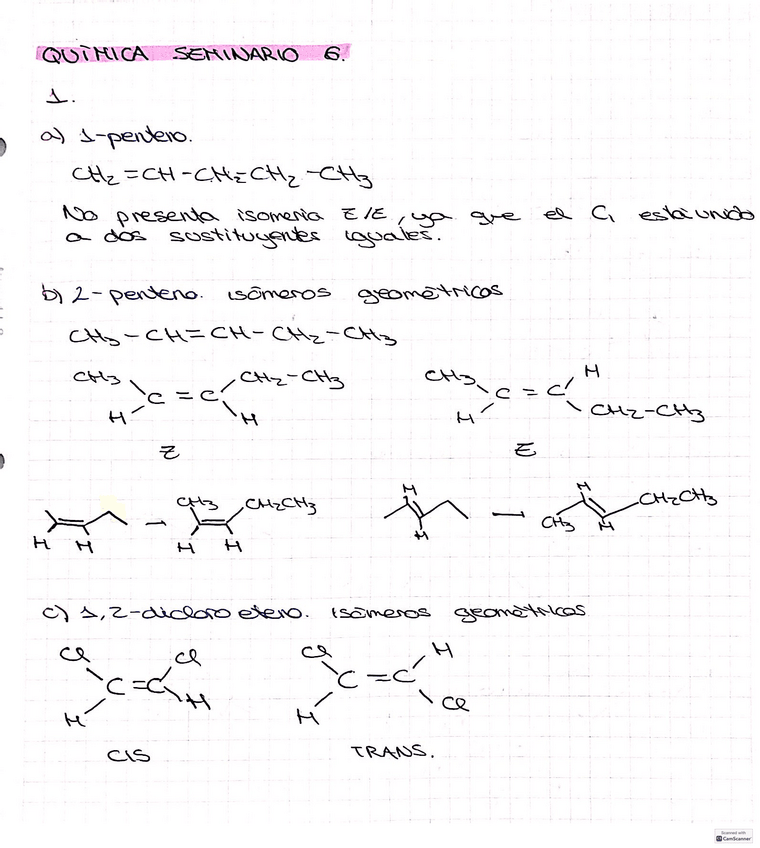 QUÍMICA SEMINARIO 6.
1.
a) 1-penteno.
CH2=CH-CH2=CH2-CH3
No presenta isomeria E/E, ya que el C1 está unido
a dos sustituyentes iguales.
b) 2-penteno. isómeros geométricos
CH3-CH=CH-CH2-CH3
CH3 CH2-CH3 CH3 H
C=C C=C
H H H CH2-CH3
Z E
CH3 CH2CH3 H H CH2CH3
H H H H H CH3 H
c) 1,2-dicloro eteno. isómeros geométricos
Cl Cl Cl H
C=C C=C
H H H Cl
CIS TRANS.
Scanned with
CS CamScanner